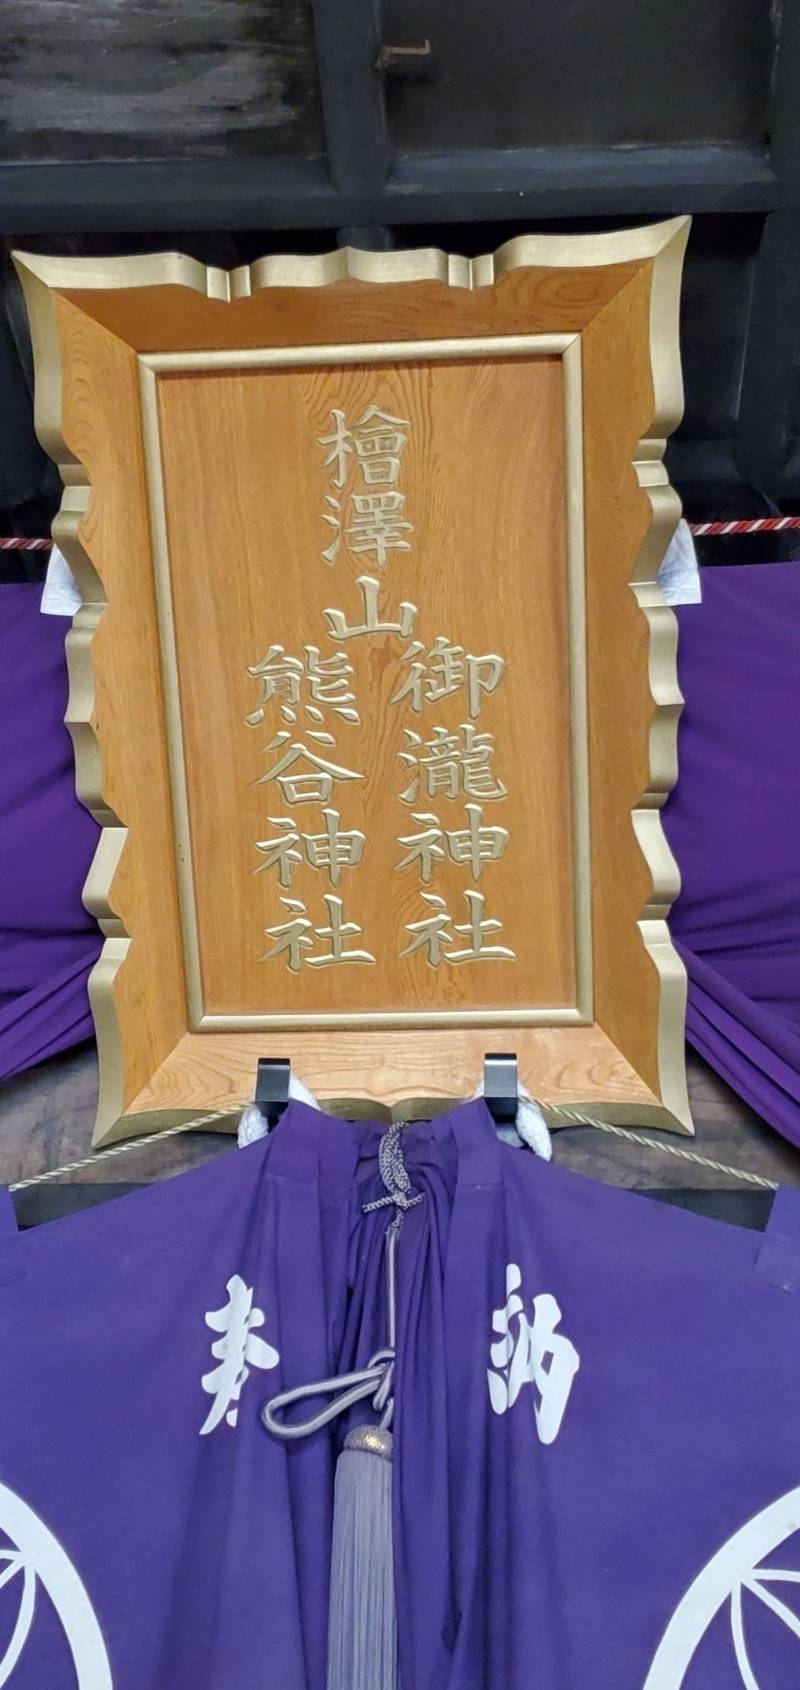 檜澤山
御瀧神社
熊谷神社
奉納